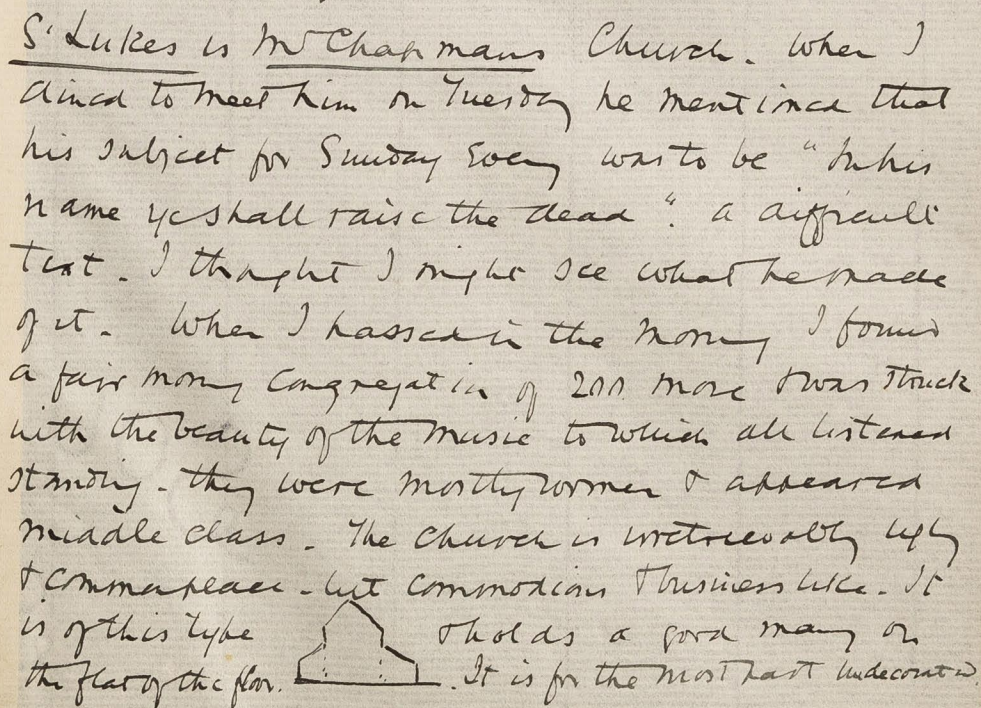 St Lukes is Mr Chapmans Church. When I
dined to meet him on Tuesday he mentioned that
his subject for Sunday Eveng was to be "In his
name ye shall raise the dead" a difficult
text. I thought I might see what he made
of it. When I passed in the Morng I found
a fair morng Congregation of 200 more & was struck
with the beauty of the music to which all listened
standing. they were mostly women & appeared
middle class. The Church is irretrievably ugly
& commonplace - but commodious & businesslike. It
is of this type & holds a good many on
the flat of the floor. It is for the most part undecorated.